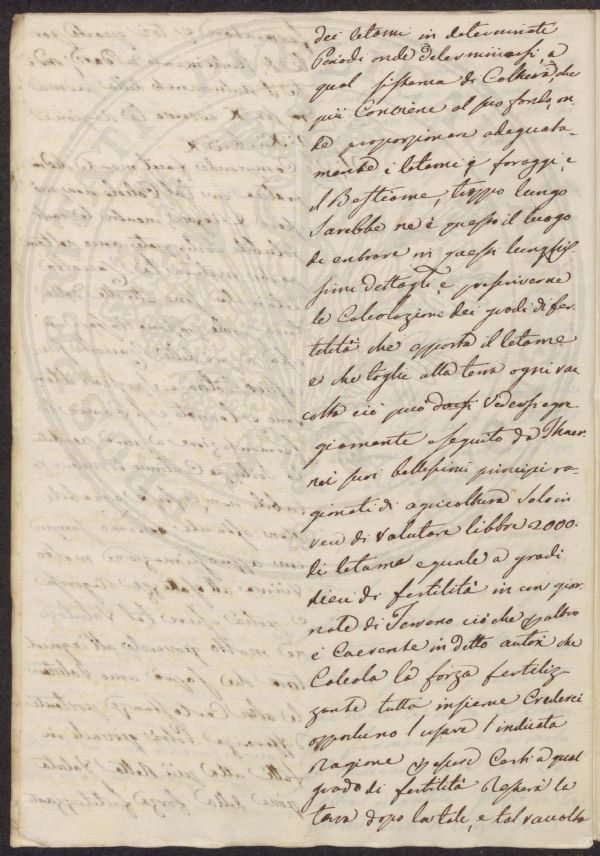 dei letami in determinate
Periodi onde determinarsi, a
qual sistema di Coltura, che
più Conviene al suo fondo, on
de proporzionare adeguata-
mente i letami, i foraggi, e
il Bestiame, troppo lungo
Sarebbe ne è questo il luogo
di entrare in questi lunghis
simi dettagli, e prescriverne
le Calcolazioni dei gradi di fer-
telità che apporta il letame
e che toglie alla terra ogni rac
colta ciò può darsi Vedersi egre
giamente eseguito da Thaer
nei suoi bellissimi principi ra-
gionati di agricoltura Solo in
vece di Valutare libbre 2000.
di letame eguale a gradi
dieci di fertilità in un gior-
nate di Terreno ciò che
è Caerente in detto autore che
Calcola la forza fertiliz-
zante tutta insieme Crederei
opportuno l'usare l'indicata
Ragione essere Certi a qual
grado di fertilità Resterà la
terra dopo la tale, e tal raccolta